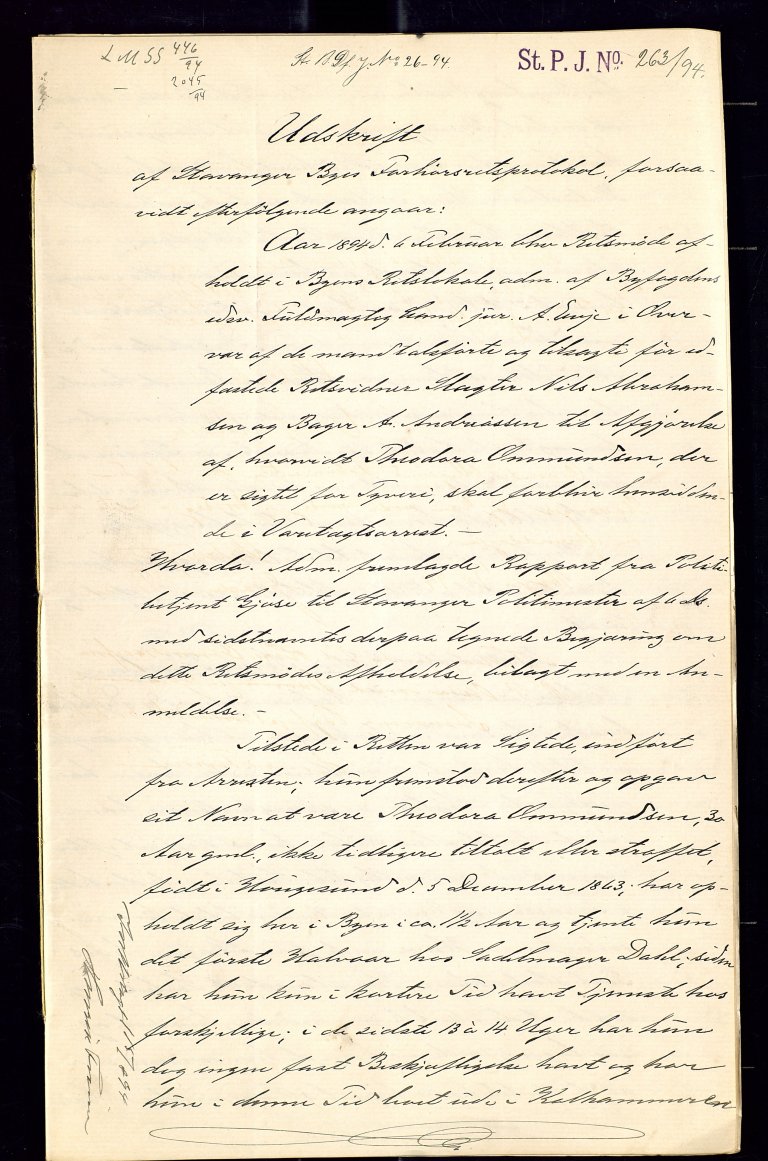 L M SS 446/94
2045/94
St. P. J. No. 263/94.
Udskrift
af Stavanger Byes Forhörsretsprotokol, forsaa-
vidt efterfölgende angaar:
Aar 1894 d. 6 Februar blev Retsmöde af-
holdt i Byens Retslokale, adm. af Byfogdens
edsv. Fuldmægtig Cand. jur. A. Eeuje i Over-
vær af de mandtalsförte og tilsagte för ed-
fæstede Retsvidner Slagter Nils Abraham-
sen og Bager A. Andreassen til Afgjörelse
af, hvorvidt Theodora Ommundsen, der
er sigtet for Tyveri, skal forblive hensidden-
de i Varetægtsarrest. —
Hvorda! Adm. fremlagde Rapport fra Politi-
betjent Gjöse til Stavanger Politimester af 6 ds.
med sidstnævntes derpaa tegnede Begjæring om
dette Retsmödes Afholdelse, bilagt med en An-
meldelse. —
Tilstede i Retten var Sigtede, indfört
fra Arresten; hun fremstod derefter og opgav
sit Navn at være Theodora Ommundsen, 30
Aar gml., ikke tidligere tiltalt eller straffet,
födt i Haugesund d. 5 December 1863; har op-
holdt sig her i Byen i ca. 1½ Aar og tjente hun
det förste Halvaar hos Sadelmager Dahl, siden
har hun kun i kortere Tid havt Tjeneste hos
forskjellige; i de sidste 13 à 14 Uger har hun
dog ingen fast Beskjæftigelse havt og har
hun i denne Tid boet ude i Kalhammeren